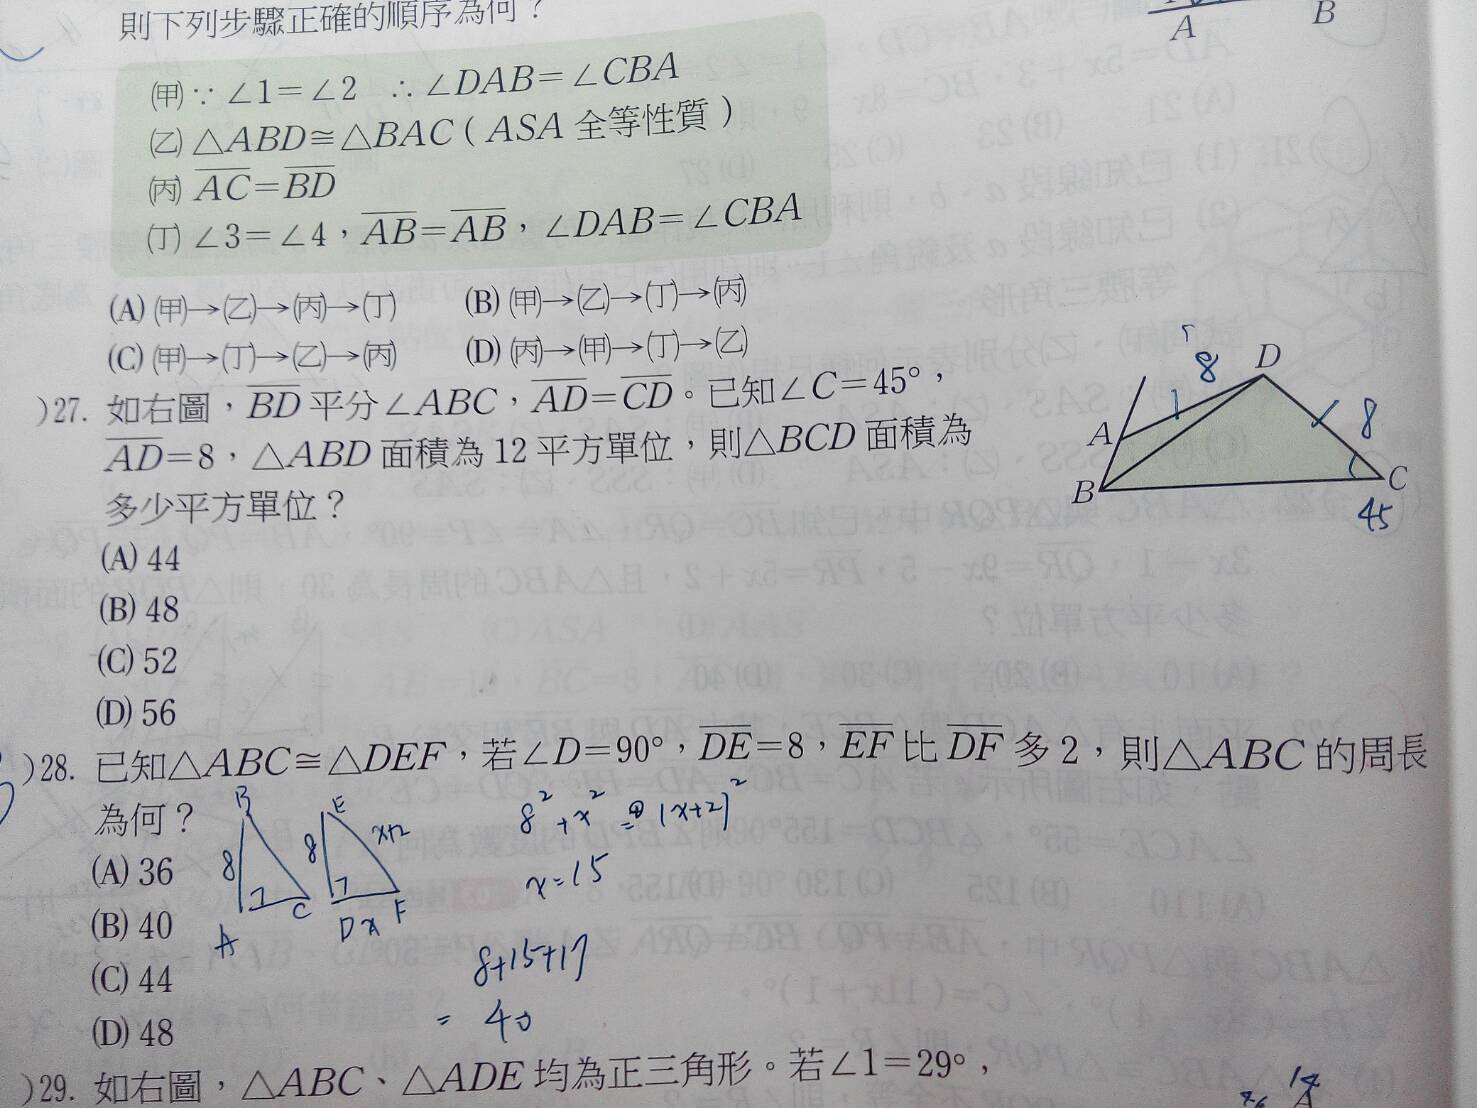 則下列步驟正確的順序為何？
A B
㈙∵∠1＝∠2 ∴∠DAB＝∠CBA
(乙)△ABD≅△BAC（ASA 全等性質）
(丙) AC＝BD
(丁)∠3＝∠4，AB＝AB，∠DAB＝∠CBA
(A)(甲)→(乙)→(丙)→(丁) (B)(甲)→(乙)→(丁)→(丙)
(C)(甲)→(丁)→(乙)→(丙) (D)(丙)→(甲)→(丁)→(乙)
)27. 如右圖，BD 平分∠ABC，AD＝CD。已知∠C＝45°，
AD＝8，△ABD 面積為 12 平方單位，則△BCD 面積為
多少平方單位？
(A) 44
(B) 48
(C) 52
(D) 56
8 D
A 8
B C
45
)28. 已知△ABC≅△DEF，若∠D＝90°，DE＝8，EF 比 DF 多 2，則△ABC 的周長
為何？
(A) 36
(B) 40
(C) 44
(D) 48
B E
8 8 x+2
C
A D x F
8²+x²=(x+2)²
x=15
8+15+17
= 40
)29. 如右圖，△ABC、△ADE 均為正三角形。若∠1＝29°，
A